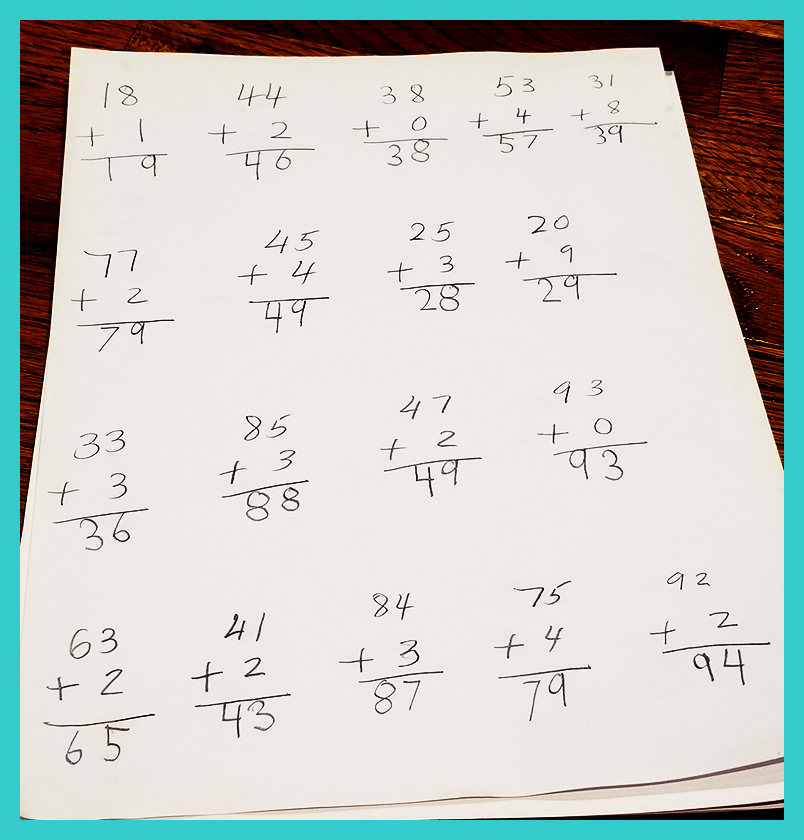 18 44 38 53 31
+ 1 + 2 + 0 + 4 + 8
19 46 38 57 39
77 45 25 20
+ 2 + 4 + 3 + 9
79 49 28 29
33 85 47 93
+ 3 + 3 + 2 + 0
36 88 49 93
63 41 84 75 92
+ 2 + 2 + 3 + 4 + 2
65 43 87 79 94